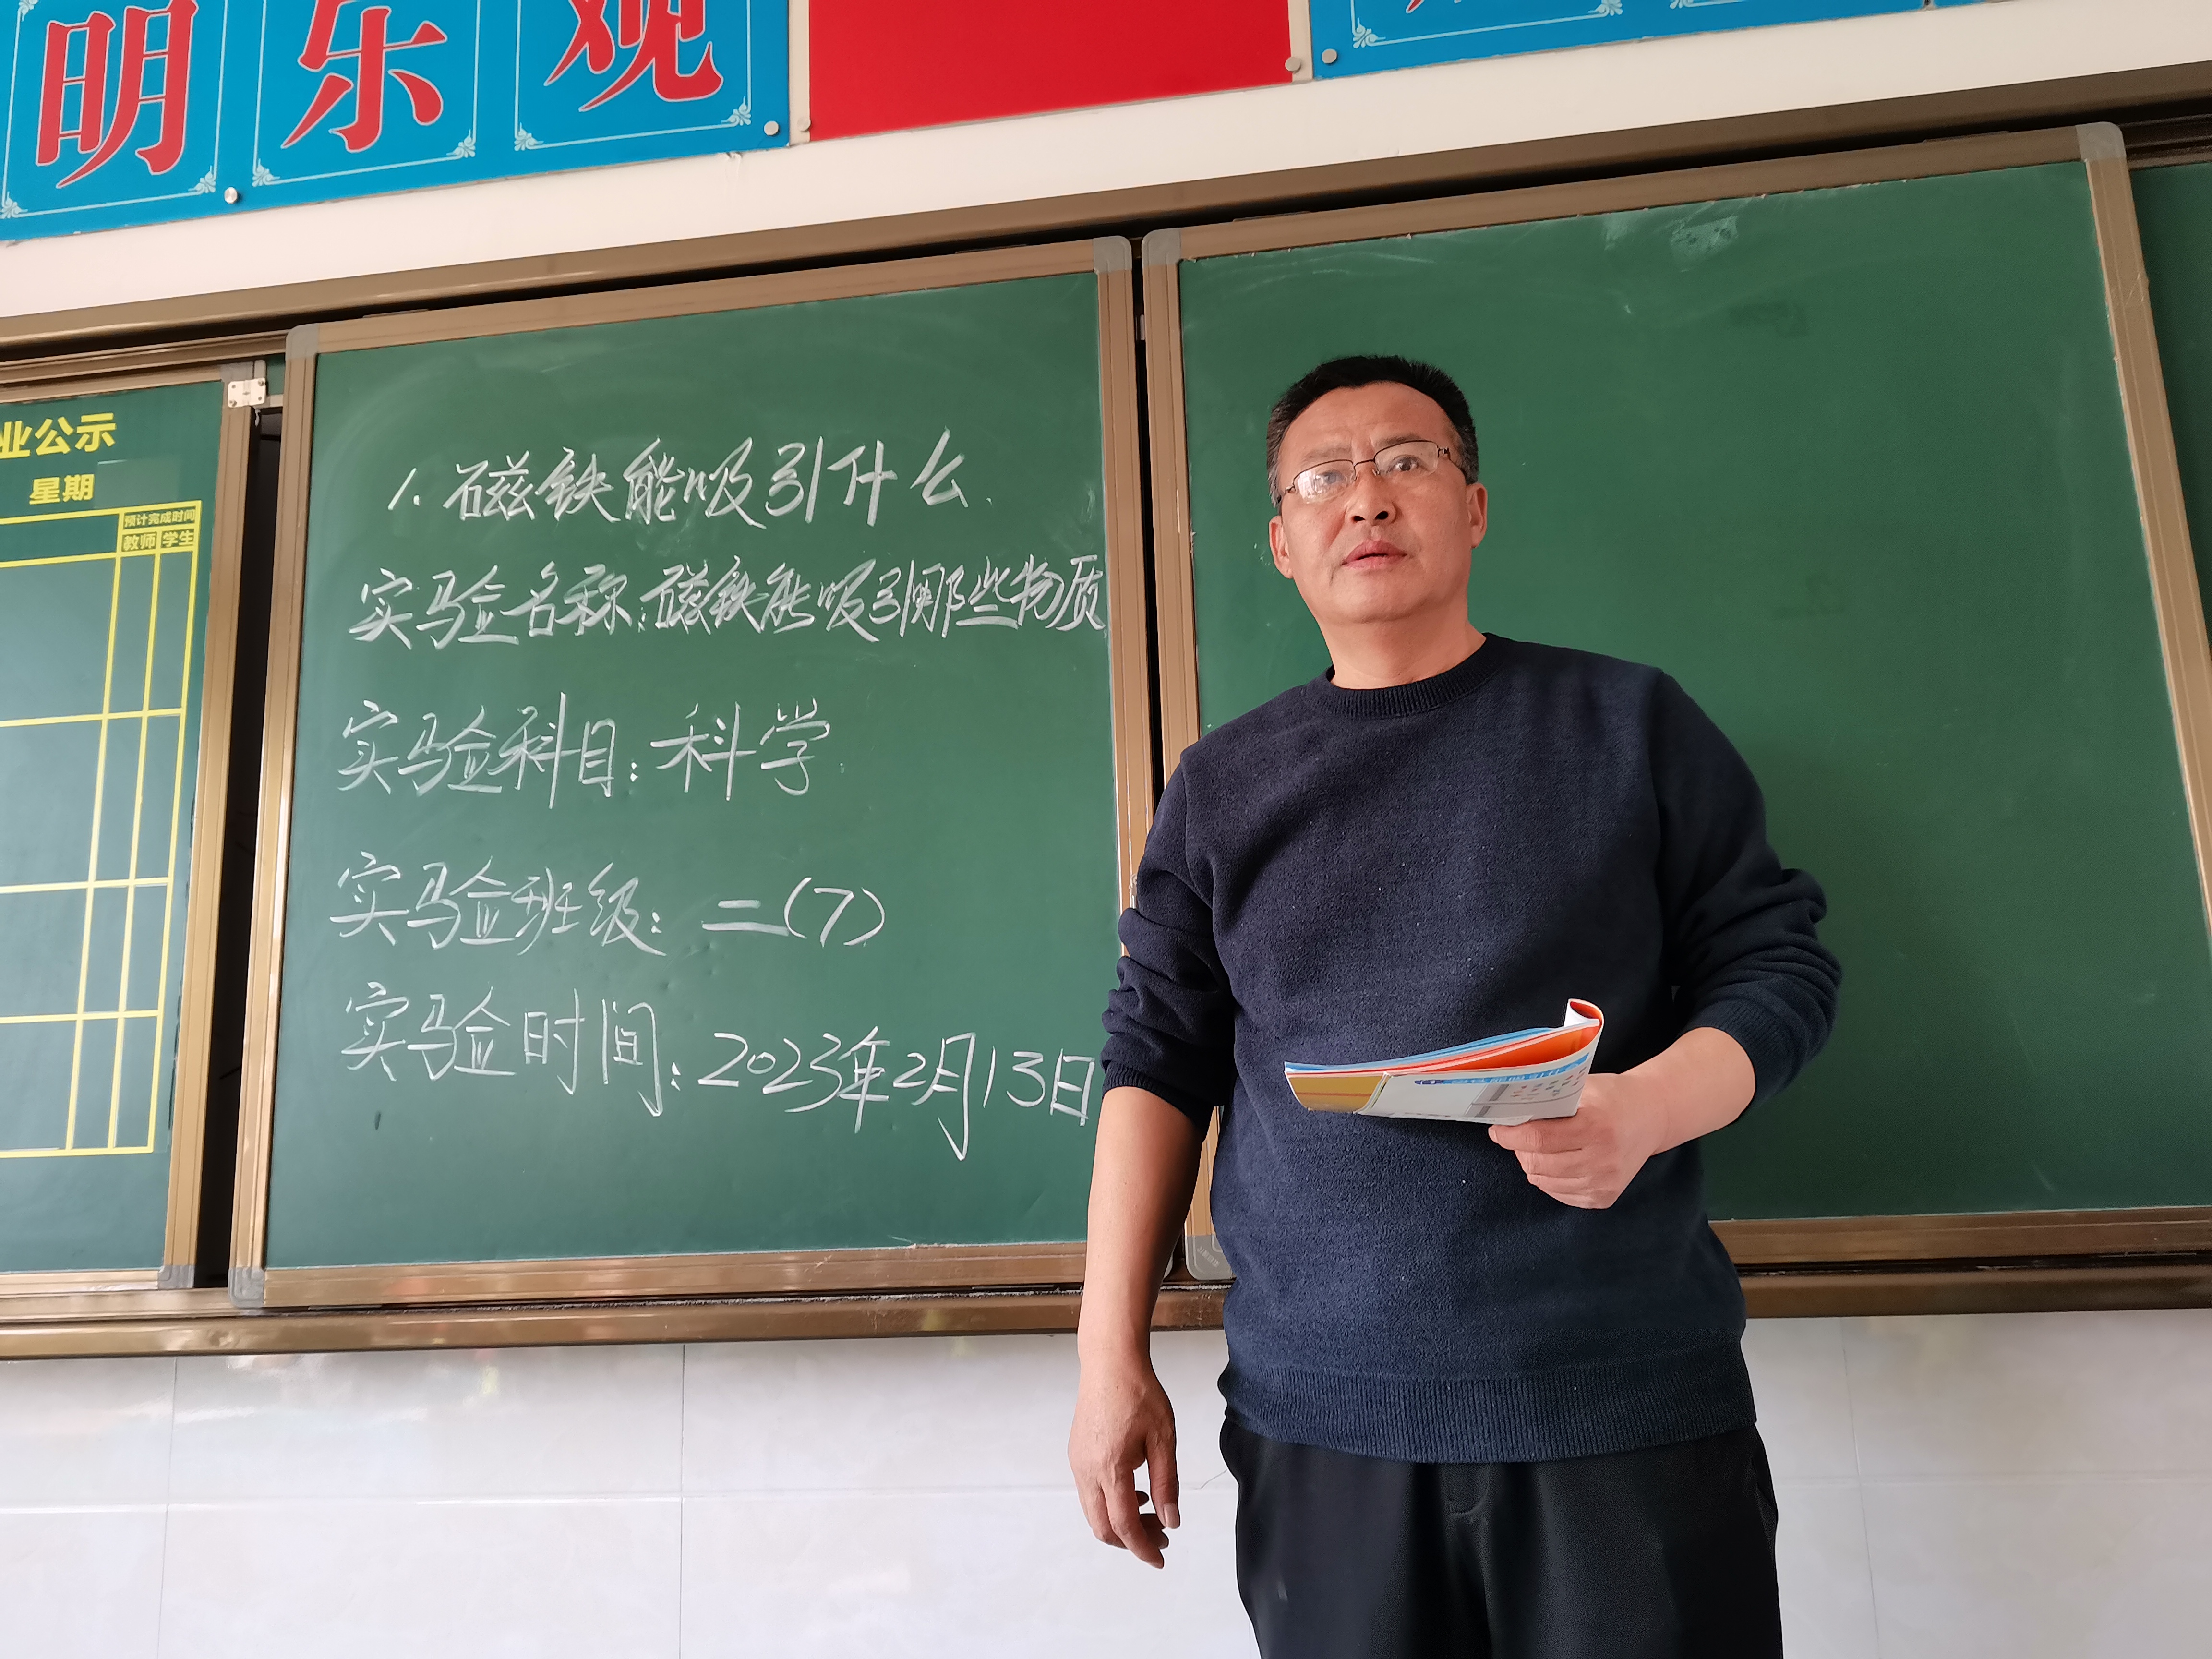 明乐观
业公示
星期
预计完成时间
教师 学生
1. 磁铁能吸引什么.
实验名称:磁铁能吸引哪些物质
实验科目:科学.
实验班级:二(7)
实验时间:2023年2月13日